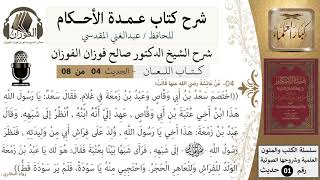 شرح كتاب عمدة الأحكام
للحافظ / عبدالغني المقدسي
شرح الشيخ الدكتور صالح فوزان الفوزان
كتاب اللعان - الحديث 04 من 08
04- عَنْ عَائِشَةَ رضي الله عنها قَالَتْ:
((اخْتَصَمَ سَعْدُ بْنُ أَبِي وَقَّاصٍ وَعَبْدُ بْنُ زَمْعَةَ فِي غُلَامٍ. فَقَالَ سَعْدٌ: يَا رَسُولَ اللَّهِ
هَذَا ابْنُ أَخِي عُتْبَةَ بْنِ أَبِي وَقَّاصٍ، عَهِدَ إِلَيَّ أَنَّهُ ابْنُهُ، اُنْظُرْ إِلَى شَبَهِهِ. وَقَالَ
عَبْدُ بْنُ زَمْعَةَ: هَذَا أَخِي يَا رَسُولَ اللَّهِ، وُلِدَ عَلَى فِرَاشِ أَبِي مِنْ وَلِيدَتِهِ، فَنَظَرَ
رَسُولُ اللَّهِ إِلَى شَبَهِهِ، فَرَأَى شَبَهًا بَيِّنًا بِعُتْبَةَ فَقَالَ: هُوَ لَكَ يَا عَبْدُ بْنَ زَمْعَةَ،
الْوَلَدُ لِلْفِرَاشِ وَلِلْعَاهِرِ الْحَجَرُ. وَاحْتَجِبِي مِنْهُ يَا سَوْدَةُ. فَلَمْ يَرَ سَوْدَةَ قَطُّ))
الفوزان
كبار العلماء
سلسلة الكتب والمتون
العلمية وشروحها الصوتية
رقم 01 حديث